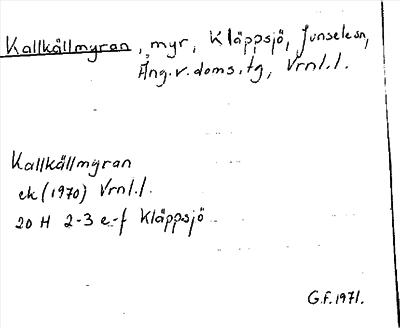 Kallkällmyran, myr, Kläppsjö, Junselesn,
Ång.v.doms.tg, Vrnl.l.
Kallkällmyran
ek (1970) Vrnl.l.
20 H 2-3 e-f Kläppsjö
G.F. 1971.